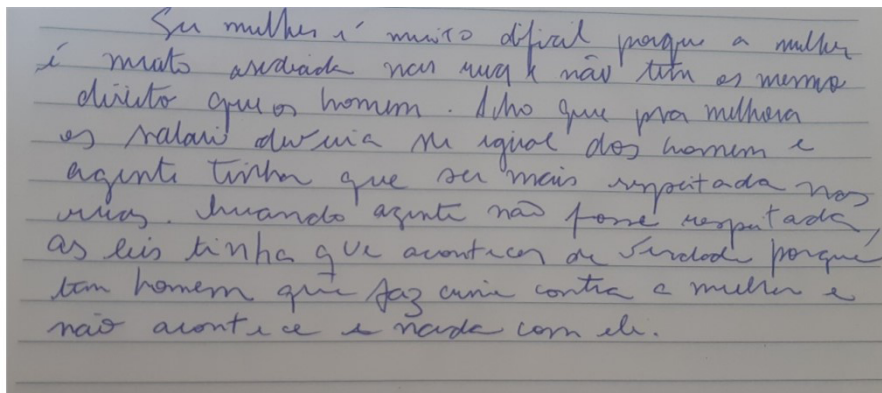 Ser mulher é muito dificil porque a mulher
é muito asediada nas rua e não tem os mesmo
direito que os homem. Acho que pra melhora
os salario deveria se igual dos homem e
agente tinha que ser mais respeitada nas
ruas. Quando agente não fosse respeitada,
as leis tinha que acontecer de verdade porque
tem homem que faz crime contra a mulher e
não acontece e nada com ele.